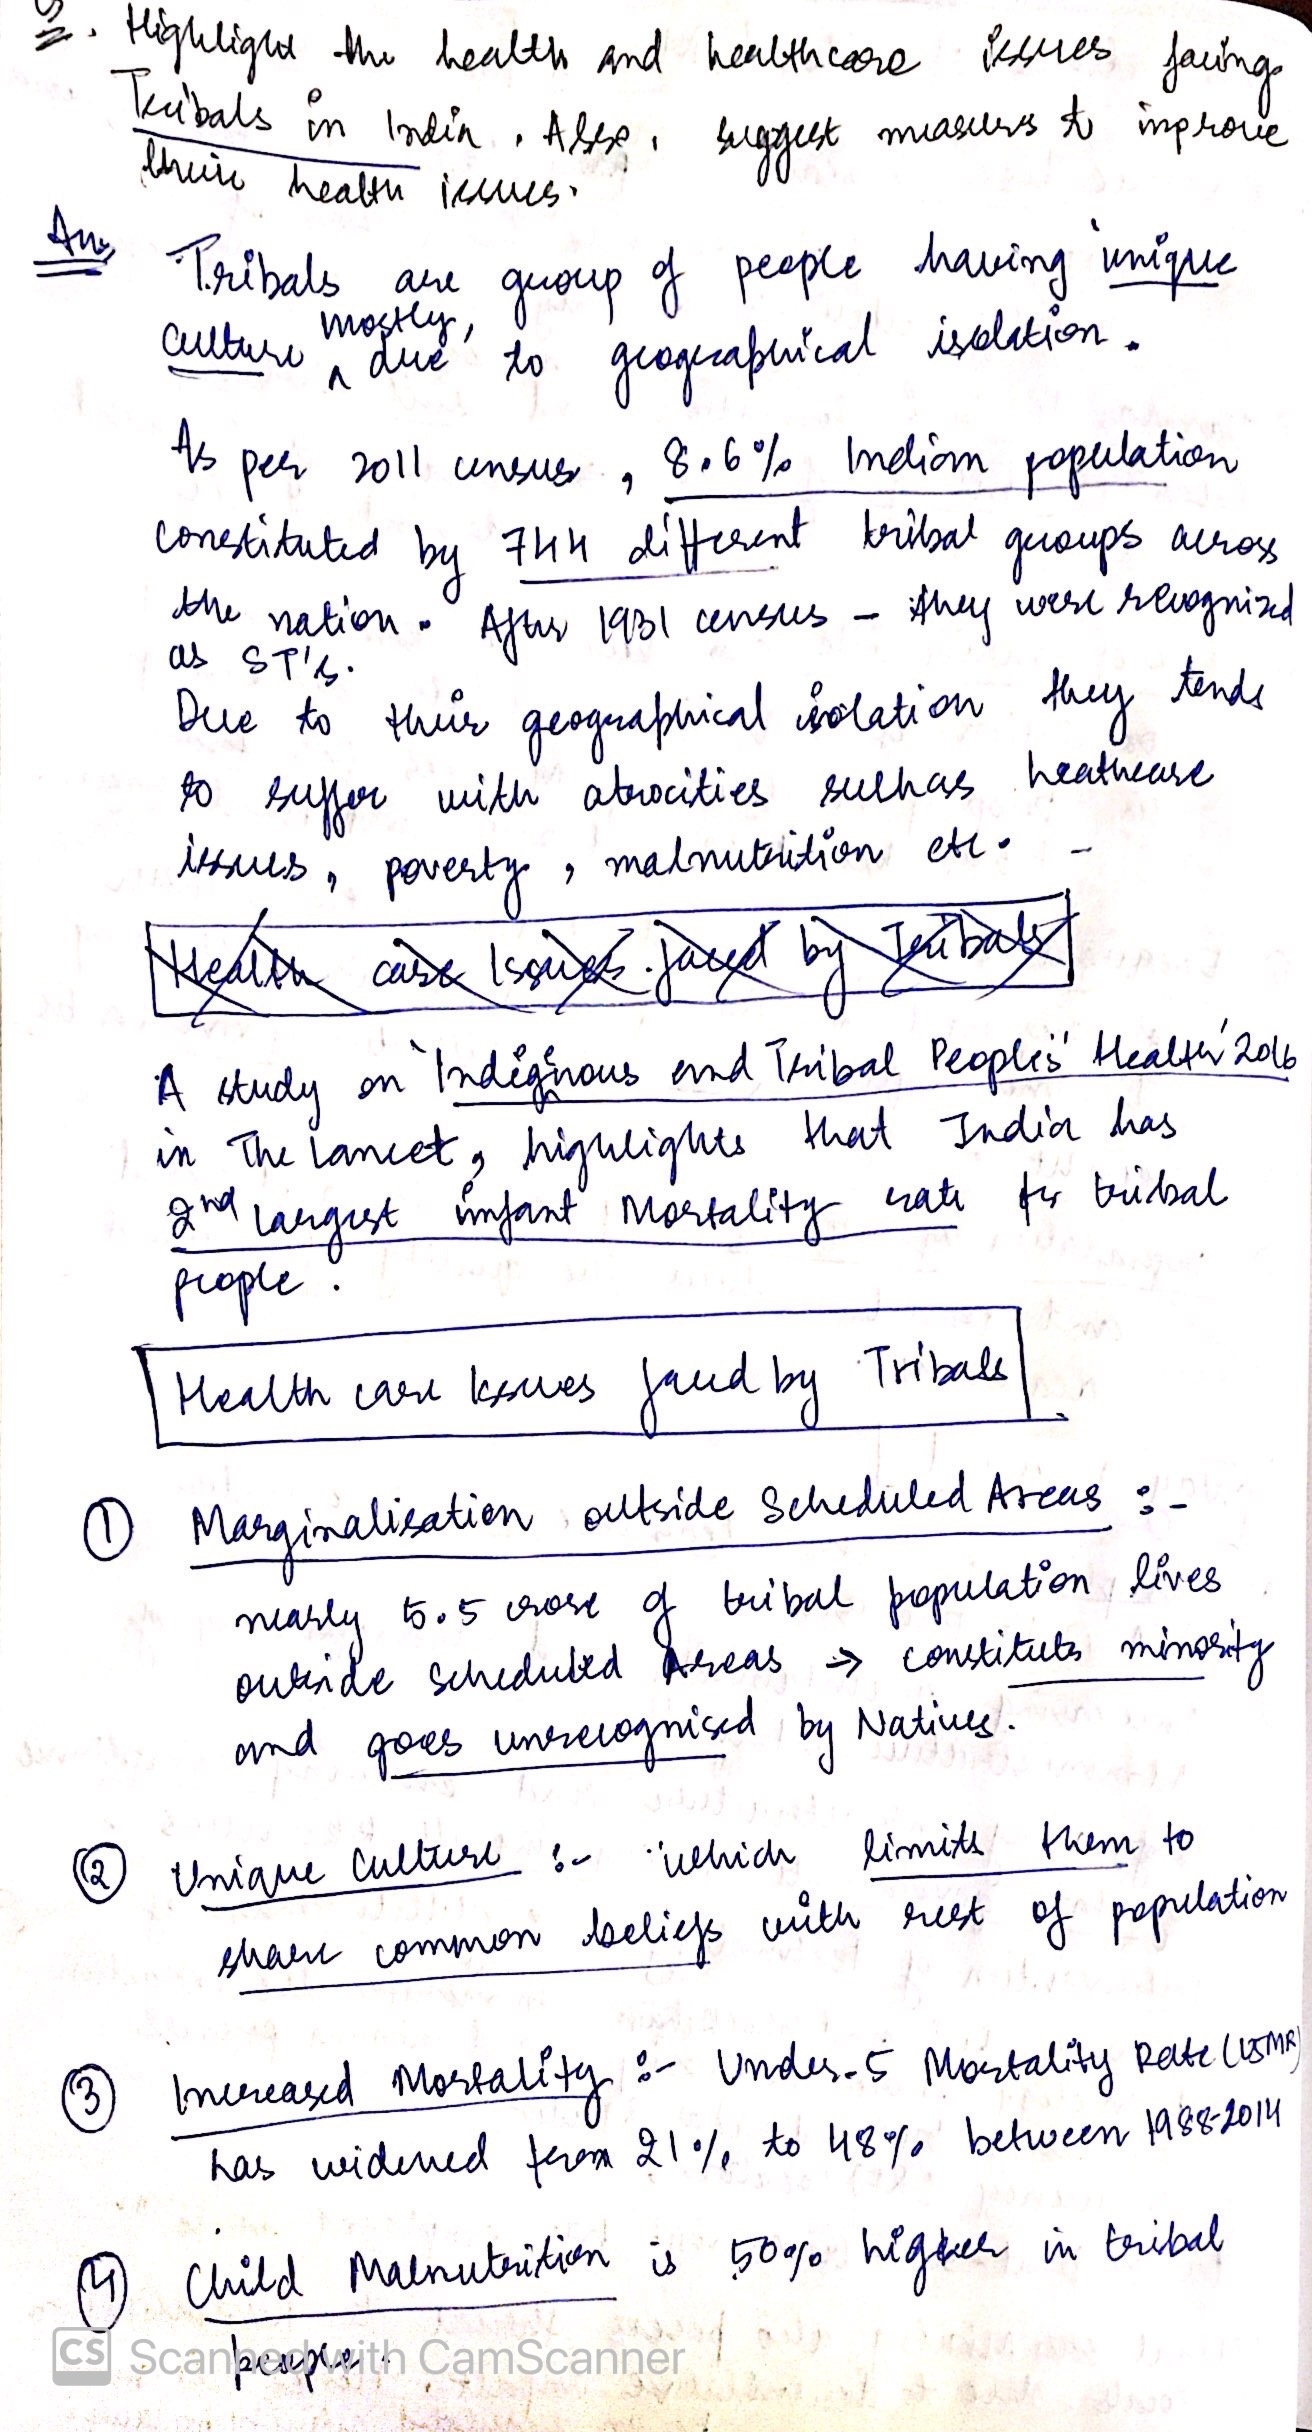 Q. Highlight the health and healthcare issues facing
Tribals in India. Also, suggest measures to improve
their health issues.
Ans Tribals are group of people having unique
culture mostly, due to geographical isolation.
As per 2011 census, 8.6% Indian population
constituted by 744 different tribal groups across
the nation. After 1931 census - they were recognized
as ST's.
Due to their geographical isolation they tends
to suffer with atrocities suchas heathcare
issues, poverty, malnutrition etc. -
Health care Issues faced by Tribals
A study on 'Indignous and Tribal People's' Health' 2016
in The Lancet, highlights that India has
2nd largest infant Mortality rate for tribal
people.
Health care Issues faced by Tribals
① Marginalisation outside Scheduled Areas :-
nearly 5.5 crore of tribal population lives
outside scheduled Areas → constitute minority
and goes unrecognised by Natives.
② Unique Culture :- which limits them to
share common beliefs with rest of population
③ Increased Mortality :- Under-5 Mortality Rate (U5MR)
has widened from 21% to 48% between 1988-2014
④ Child Malnutrition is 50% higher in tribal
people.
CS Scanned with CamScanner